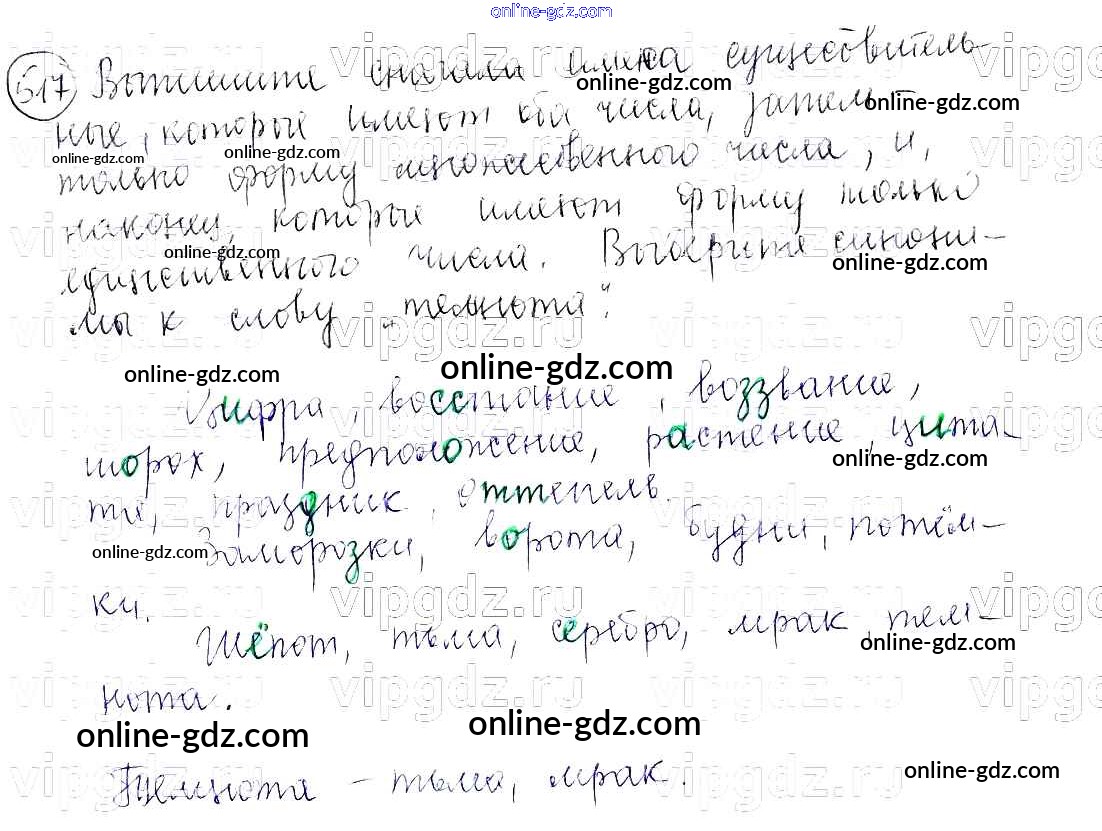 online-gdz.com
517 Выпишите сначала имена существитель-
ные, которые имеют оба числа, затем -
только форму множественного числа, и,
наконец, которые имеют форму только
единственного числа. Выберите синони-
мы к слову „темнота".
Цифра, восстание, воззвание,
шорох, предположение, растение, цита-
ты, праздник, оттепель.
Заморозки, ворота, будни, потём-
ки.
Шёпот, тьма, серебро, мрак, тем-
нота.
Темнота - тьма, мрак.